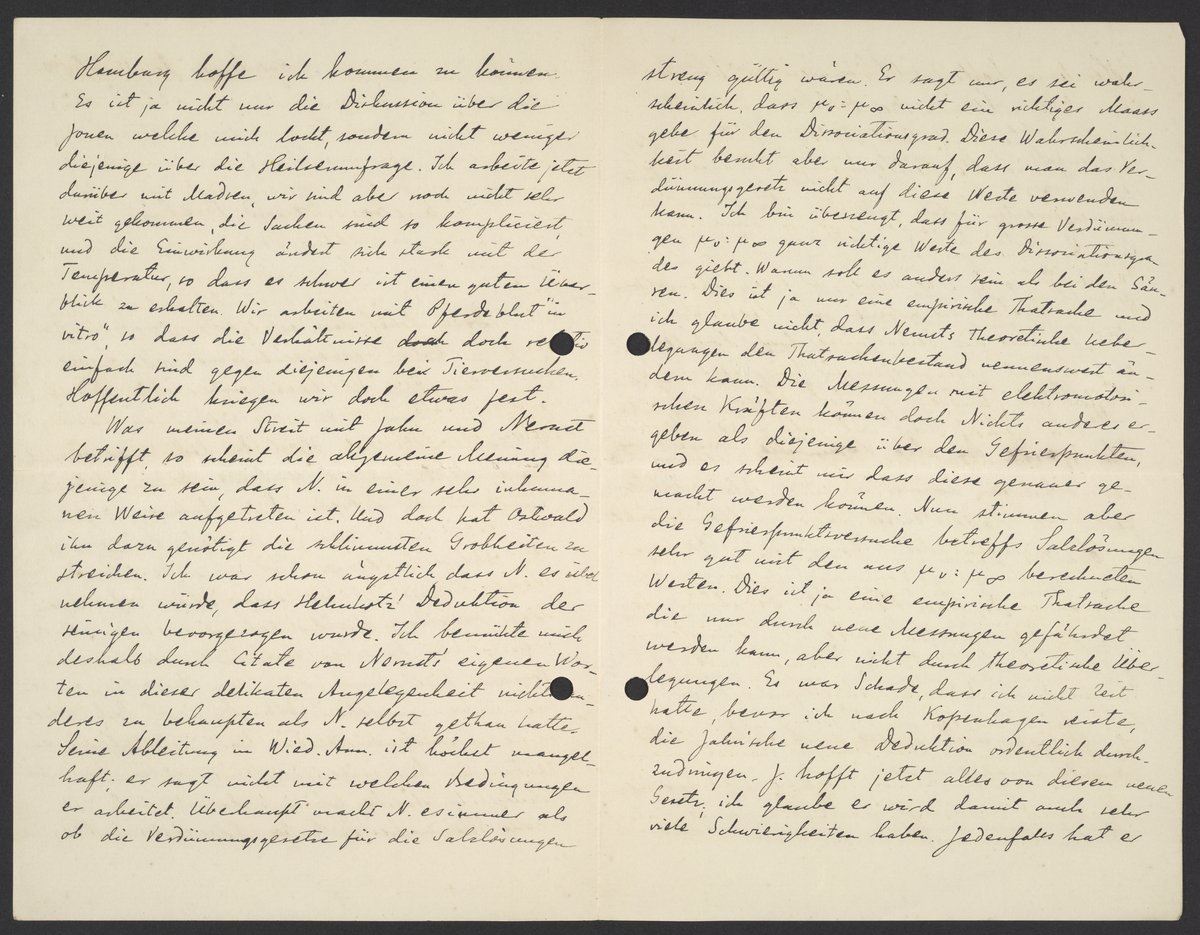 Hamburg hoffe ich kommen zu können.
Es ist ja nicht nur die Diskussion über die
Jonen welche mich lockt, sondern nicht weniger
diejenige über die Heilserumfrage. Ich arbeite jetzt
darüber mit Madsen, wir sind aber noch nicht sehr
weit gekommen, die Sachen sind so kompliciert,
und die Einwirkung ändert sich stark mit der
Temperatur, so dass es schwer ist einen guten Über-
blick zu erhalten. Wir arbeiten mit Pferdeblut "in
vitro", so dass die Verhältnisse doch
einfach sind gegen diejenigen bei Tierversuchen.
Hoffentlich kriegen wir doch etwas fest.
Was meinen Streit mit Jahn und Nernst
betrifft, so scheint die allgemeine Meinung die-
jenige zu sein, dass N. in einer sehr inhuma-
nen Weise aufgetreten ist. Und doch hat Ostwald
ihn dazu genötigt die schlimmsten Grobheiten zu
streichen. Ich war schon ängstlich dass N. es übel
nehmen würde, dass Helmholtz' Deduktion der
seinigen bevorgezogen wurde. Ich bemühte mich
deshalb durch Citate von Nernst's eigenen Wor-
ten in dieser delikaten Angelegenheit nichts an-
deres zu behaupten als N. selbst gethan hatte.
Seine Ableitung in Wied. Ann. ist höchst mangel-
haft; er sagt nicht mit welchen Bedingungen
er arbeitet. Überhaupt macht N. es immer als
ob die Verdünnungsgesetze für die Salzlösungen
streng gültig wären. Er sagt nur, es sei wahr-
scheinlich, dass μv : μ∞ nicht ein richtiges Maass
gebe für den Dissociationsgrad. Diese Wahrscheinlich-
keit beruht aber nur darauf, dass man das Ver-
dünnungsgesetz nicht auf diese Werte verwenden
kann. Ich bin überzeugt, dass für grosse Verdünnun-
gen μv : μ∞ ganz richtige Werte des Dissociationsgra-
des giebt. Warum soll es anders sein als bei den Säu-
ren. Dies ist ja nur eine empirische Thatsache und
ich glaube nicht, dass Nernsts theoretische Ueber-
legungen den Thatsachenbestand nennenswert än-
dern kann. Die Messungen mit elektromotori-
schen Kräften können doch Nichts anderes er-
geben als diejenige über den Gefrierpunkten,
und es scheint mir dass diese genauer ge-
macht werden können. Nun stimmen aber
die Gefrierpunktsversuche betreffs Salzlösungen
sehr gut mit den aus μv : μ∞ berechneten
Werten. Dies ist ja eine empirische Thatsache
die nur durch neue Messungen gefährdet
werden kann, aber nicht durch theoretische Über-
legungen. Es war Schade, dass ich nicht Zeit
hatte, bevor ich nach Kopenhagen reiste,
die Jahn'sche neue Deduktion ordentlich durch-
zudringen. J. hofft jetzt alles von diesem neuen
Gesetz; ich glaube er wird damit auch sehr
viele Schwierigkeiten haben. Jedenfalls hat er